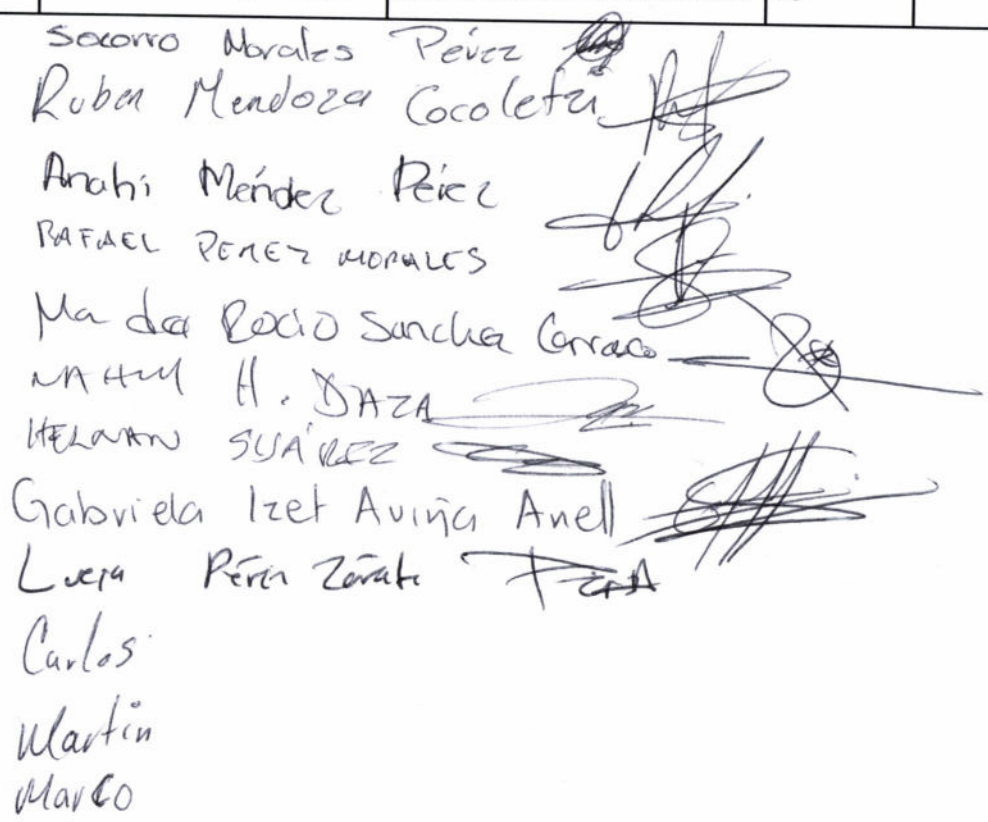 Socorro Morales Pérez
Ruben Mendoza Cocoletzi
Anahí Méndez Pérez
RAFAEL PEREZ MORALES
Ma del Rocio Sanchez Carrasco
NAHUM H. DAZA
HELMAN SUÁREZ
Gabriela Izet Aviña Anell
Pérez Zárate
Carlos
Martin
Marco